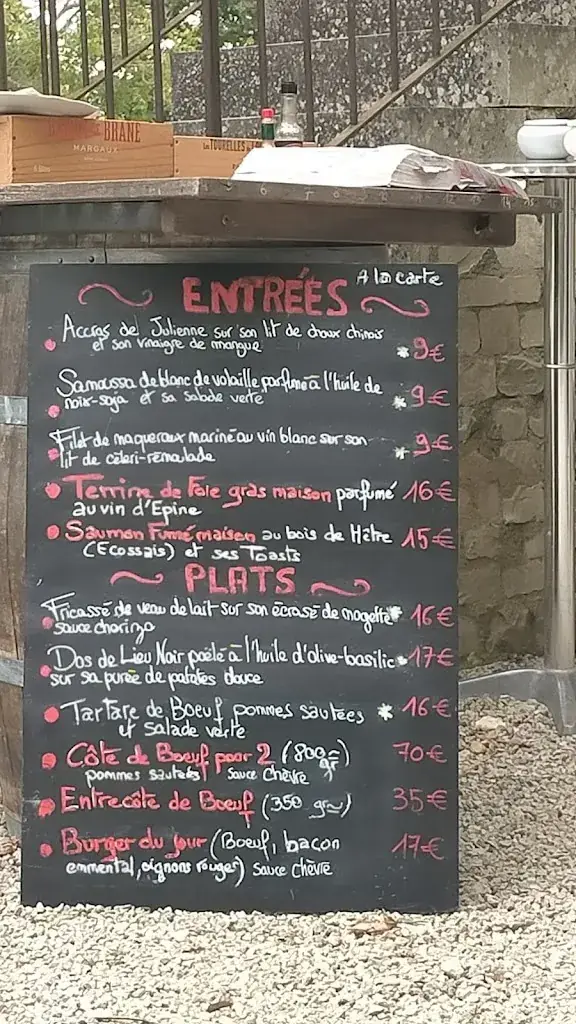 BRANE
MARGAUX
TOURELLES
A la carte
ENTRÉES
Accras de Julienne sur son lit de choux chinois
et son vinaigre de mangue * 9€
Samoussa de blanc de volaille parfumé à l'huile de
noix-soja et sa salade verte * 9€
Filet de maquereaux mariné au vin blanc sur son
lit de céleri-rémoulade * 9€
Terrine de Foie gras maison parfumé 16€
au vin d'Epine
Saumon Fumé maison au bois de Hêtre 15€
(Ecossais) et ses Toasts
PLATS
Fricassé de veau de lait sur son écrasé de mogette * 16€
sauce chorizo
Dos de Lieu Noir poêlé à l'huile d'olive-basilic * 17€
sur sa purée de patates douce
Tartare de Boeuf pommes sautées * 16€
et salade verte
Côte de Boeuf pour 2 (800gr) 70€
pommes sautées sauce chèvre
Entrecôte de Boeuf (350 gr) 35€
Burger du jour (Boeuf, bacon 17€
emmental, oignons rouges) sauce chèvre